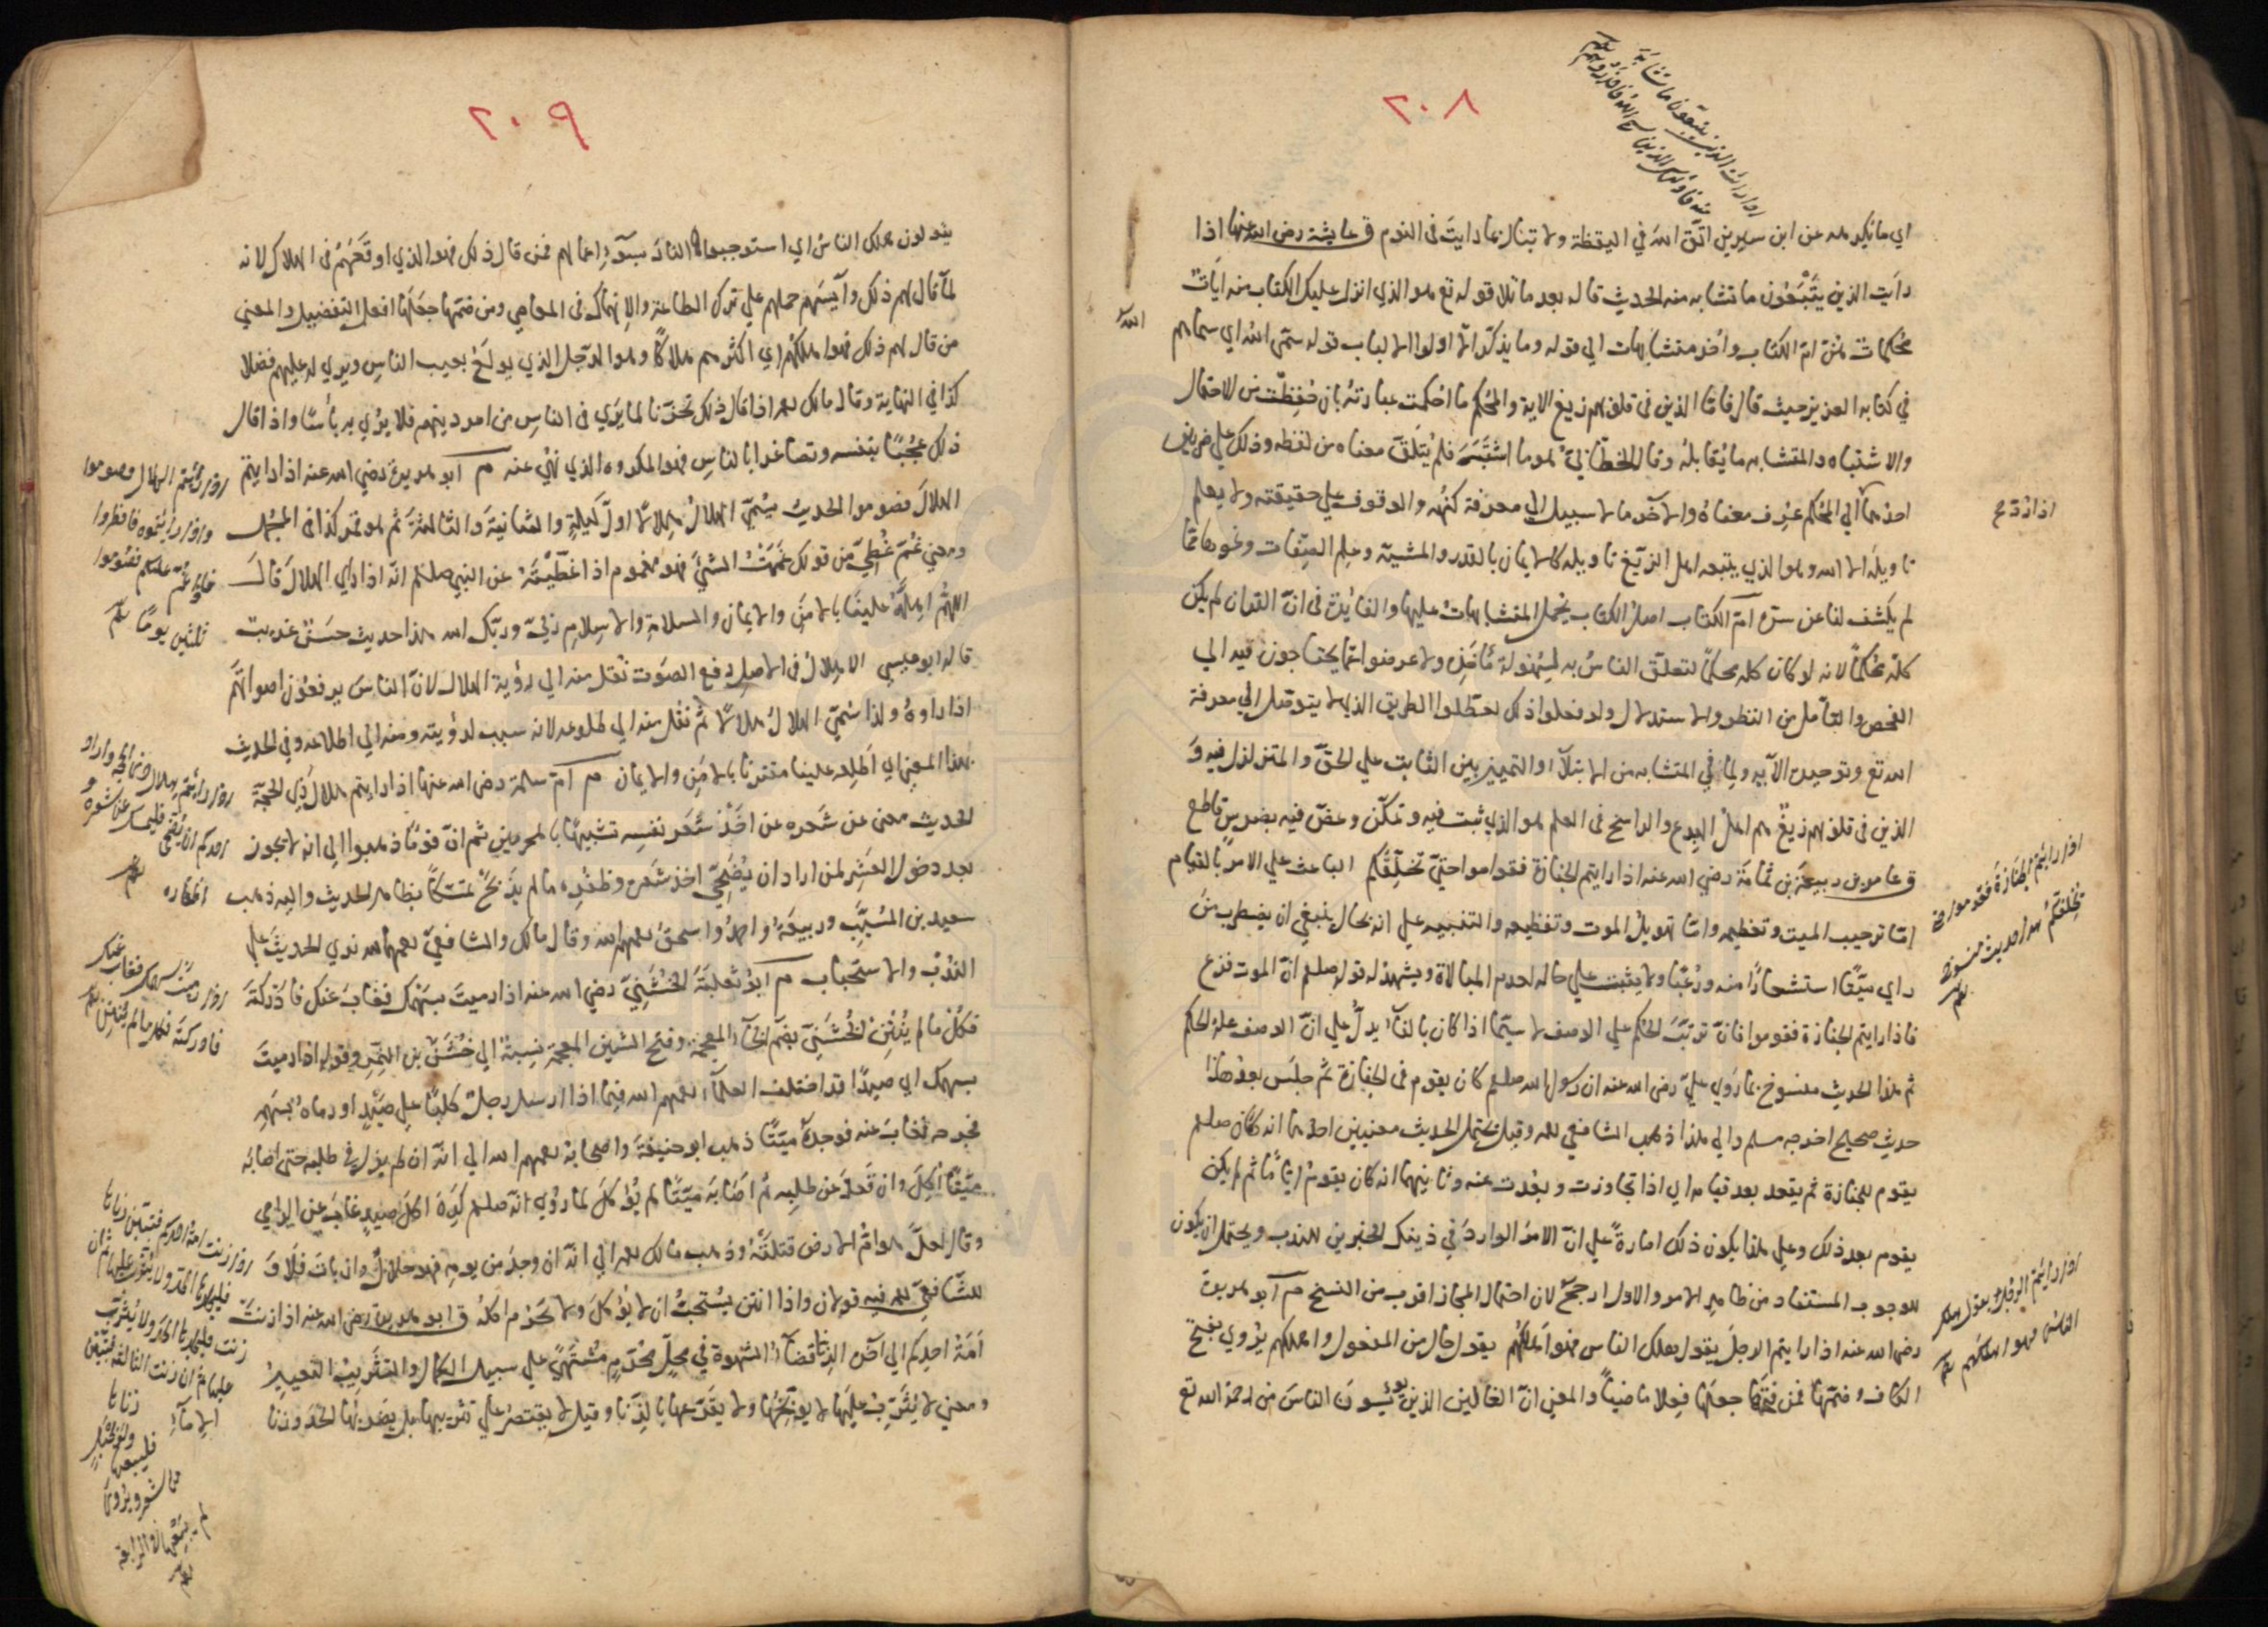 ٢٠٨
اذا رايت الذين يتبعون ما تشابه
منه فاولئك الذين سمى الله فاحذروهم
اي ما تكره عن ابن سيرين اتق الله في اليقظة ولا تبال بما رايت في النوم ق عايشة رضي الله عنها اذا
رايت الذين يتبعون ما تشابه منه الحديث قاله بعد ما تلا قوله تع هو الذي انزل عليك الكتاب منه ايات
محكمات هن ام الكتاب واخر متشابهات الي قوله وما يذكر الا اولوا الالباب قوله سمى الله اي سماهم
الله
في كتابه العزيز حيث قال فاما الذين في قلوبهم زيغ الاية والمحكم ما احكمت عبارته بان حفظت من الاحتمال
والاشتباه والمتشابه ما يقابله وقال الخطابي هو ما اشتبه فلم يتلق معناه من لفظه وذلك علي ضربين
احدهما الي المحكم عرف معناه والاخر ما لا سبيل الي معرفة كنهه والوقوف علي حقيقته ولا يعلم
اذا رد
تاويله الا الله وهو الذي يتبعه اهل الزيغ تاويله كالايمان بالقدر والمشية وعلم الصفات ونحوها مما
لم يكشف لنا عن سره ام الكتاب اصل الكتاب يحمل المتشابهات عليها والفائدة في ان القران لم يكن
كله محكما لانه لو كان كله محكما لتعلق الناس به لسهولة ماخذه ولاعرضوا عما يحتاجون فيه الي
الفحص والتامل من النظر والاستدلال ولو فعلوا ذلك لعطلوا الطريق الذي لا يتوصل الي معرفة
الله تع وتوحيده الا به ولما في المتشابه من الابتلاء والتمييز بين الثابت علي الحق والمتزلزل فيه و
الذين في قلوبهم زيغ هم اهل البدع والراسخ في العلم هو الذي ثبت فيه وتمكن وعض فيه بضرس قاطع
ق عامر بن ربيعة بن ثمامة رضي الله عنه اذا رايتم الجنازة فقوموا حتي تخلفكم الباعث علي الامر بالقيام
اذا رايتم الجنازة فقوموا حتى
تخلفكم هذا حديث منسوخ
اما ترحيب الميت وتعظيمه واما تهويل الموت وتفظيعه والتنبيه علي انه بحال ينبغي ان يضطرب من
راي ميتا استشعارا منه ورعبا ولا يثبت علي حاله لعدم المبالاة ويشهد له قوله صلعم ان الموت فزع
فاذا رايتم الجنازة فقوموا فان ترتب الحكم علي الوصف لا سيما اذا كان بالفاء يدل علي ان الوصف علة الحكم
ثم هذا الحديث منسوخ بما روي علي رضي الله عنه ان رسول الله صلعم كان يقوم في الجنازة ثم جلس بعد هذا
حديث صحيح اخرجه مسلم والي هذا ذهب الشافعي رحمه وقيل يحتمل الحديث معنيين احدهما انه كان صلعم
يقوم للجنازة ثم يقعد بعد قيامه اي اذا تجاوزت وبعدت عنه وثانيهما انه كان يقوم اياما ثم لم يكن
يقوم بعد ذلك وعلي هذا يكون ذلك امارة علي ان الامر الوارد في ذينك الخبرين للندب ويحتمل ان يكون
للوجوب المستفاد من ظاهر الامر والاول ارجح لان احتمال المجاز اقرب من النسخ م ابو هريرة
رضي الله عنه اذا رايتم الرجل يقول هلك الناس فهو اهلكهم يقول حال من المفعول واهلكهم يروي بفتح
اذا رايتم الرجل يقول هلك
الناس فهو اهلكهم
الكاف وضمها فمن فتحها جعلها فعلا ماضيا والمعني ان الغالين الذين يويسون الناس من رحمة الله تع
٢٠٩
يقولون هلك الناس اي استوجبوا النار بسوء اعمالهم فمن قال ذلك فهو الذي اوقعهم في الهلاك لانه
لما قال لهم ذلك وآيسهم حملهم علي ترك الطاعة والانهماك في المعاصي ومن ضمها جعلها افعل التفضيل والمعني
من قال لهم ذلك فهو اهلكهم اي اكثرهم هلاكا وهو الرجل الذي يولع بعيب الناس ويري له عليهم فضلا
كذا في النهاية وقال مالك رحمه اذا قال ذلك تحزنا لما يري في الناس من امر دينهم فلا يري به باسا واذا قال
ذلك عجبا بنفسه وتصاغرا بالناس فهو المكروه الذي نهي عنه م ابو هريرة رضي الله عنه اذا رايتم
اذا رايتم الهلال فصوموا
واذا رايتموه فافطروا
فان غم عليكم فصوموا
ثلثين يوما
الهلال فصوموا الحديث سمي الهلال هلالا اول ليلة والثانية والثالثة ثم هو قمر كذا في المجمل
ومعني غم غطي من قولك غممت الشئ فهو مغموم اذا غطيته عن النبي صلعم انه اذا راي الهلال قال
اللهم اهله علينا بالامن والايمان والسلامة والاسلام ربي وربك الله هذا حديث حسن غريب
قاله ابو عيسي الاهلال في الاصل رفع الصوت نقل منه الي رؤية الهلال لان الناس يرفعون اصواتهم
اذا راوه ولذا سمي الهلال هلالا ثم نقل منه الي طلوعه لانه سبب لرؤيته ومنه الي اطلاعه وفي الحديث
بهذا المعني اي اطلعه علينا مقترنا بالامن والايمان م ام سلمة رضي الله عنها اذا رايتم هلال ذي الحجة
اذا رايتم هلال ذي الحجة واراد
احدكم ان يضحي فليمسك عن شعره و
اظفاره
الحديث معني عن شعره عن اخذ شعر نفسه تشبيها بالمحرمين ثم ان قوما ذهبوا الي انه لا يجوز
بعد دخول العشر لمن اراد ان يضحي اخذ شعره وظفره ما لم يذبح تمسكا بظاهر الحديث واليه ذهب
سعيد بن المسيب وربيعة واحمد واسحق رحمهم الله وقال مالك والشافعي رحمهما الله ندي الحديث علي
الندب والاستحباب م ابو ثعلبة الخشني رضي الله عنه اذا رميت بسهمك فغاب عنك فادركته
اذا رميت بسهمك فغاب عنك
فادركته فكله ما لم ينتن
فكل ما لم ينتن الخشني بضم الخاء المعجمة وفتح الشين المعجمة نسبة الي خشن بن النمر وقوله اذا رميت
بسهمك اي صيدا قد اختلف العلماء رحمهم الله فيما اذا ارسل رجل كلبا علي صيد او رماه بسهم
فجرحه فغاب عنه فوجده ميتا ذهب ابو حنيفة واصحابه رحمهم الله الي انه ان لم يزل في طلبه حتى اصابه
ميتا اكل وان قعد عن طلبه ثم اصابه ميتا لم يؤكل لما روي انه صلعم كره اكل صيد غاب عن الرامي
وقال لعل هوام الارض قتلته وذهب مالك رحمه الي انه ان وجد من يومه فهو حلال وان بات فلا و
للشافعي رحمه فيه قولان واذا انتن يستحب ان لا يؤكل ولا يحرم اكله ق ابو هريرة رضي الله عنه اذا زنت
اذا زنت امة احدكم فتبين زناها
فليجلدها الحد ولا يثرب عليها ثم ان
زنت فليجلدها الحد ولا يثرب
عليها ثم ان زنت الثالثة فتبين
زناها
فليبعها
ولو بحبل
من شعر ويروى
ثم يبعها في الرابعة
امة احدكم الي آخره الزنا قضاء الشهوة في محل محرم مشتهي علي سبيل الكمال والتثريب التعيير
ومعني لا يثرب عليها لا يوبخها ولا يقرعها بالزنا وقيل لا يقتصر علي تثريبها بل يضربها الحد وزنا
الاماء